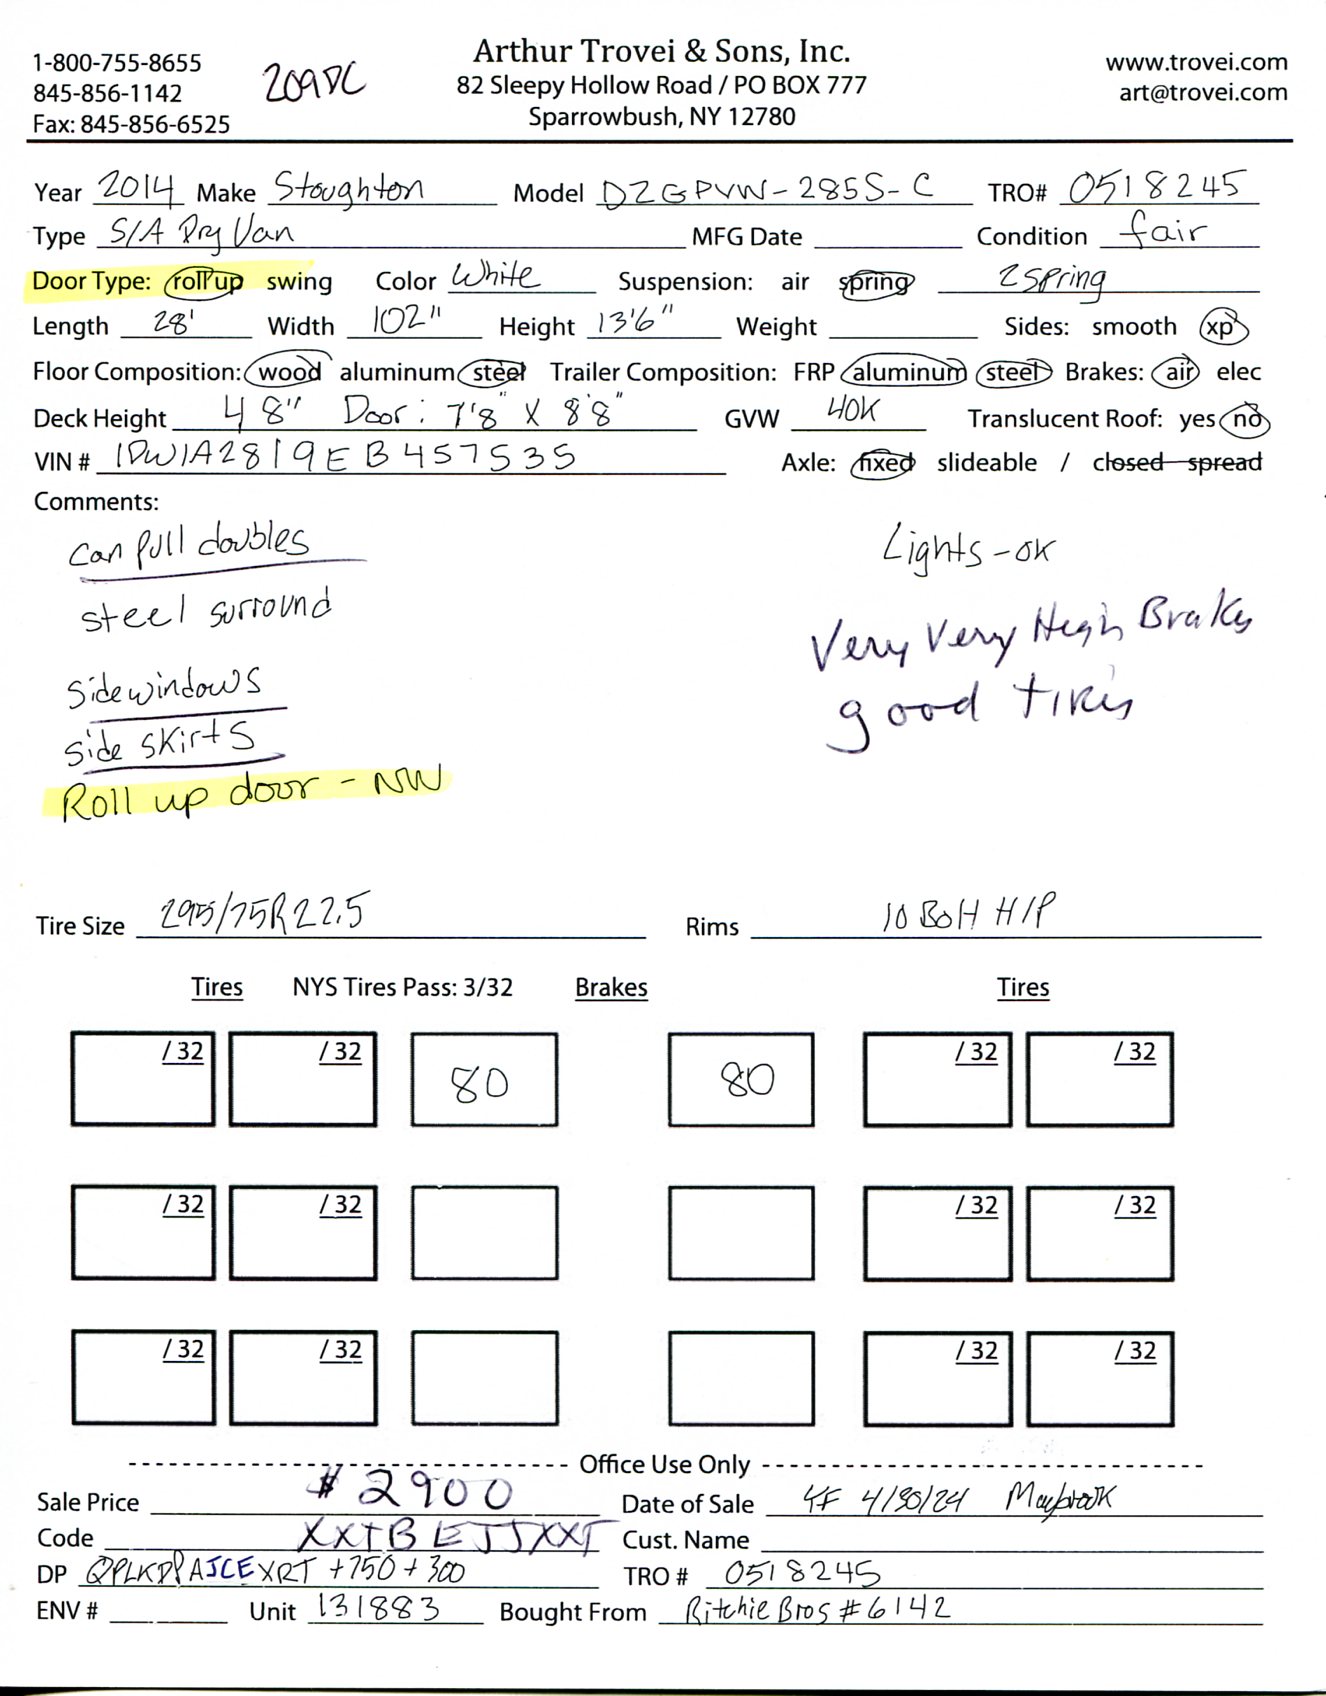 1-800-755-8655
845-856-1142
Fax: 845-856-6525
209DC
Arthur Trovei & Sons, Inc.
82 Sleepy Hollow Road / PO BOX 777
Sparrowbush, NY 12780
www.trovei.com
art@trovei.com
Year 2014 Make Stoughton Model DZGPVW-285S-C TRO# 0518245
Type S/A Dry Van MFG Date Condition fair
Door Type: roll up swing Color White Suspension: air spring 2 spring
Length 28' Width 102" Height 13'6" Weight Sides: smooth xp
Floor Composition: wood aluminum steel Trailer Composition: FRP aluminum steel Brakes: air elec
Deck Height 48" Door: 7'8" X 8'8" GVW 40K Translucent Roof: yes no
VIN # 1DW1A2819EB457535 Axle: fixed slideable / closed spread
Comments:
can pull doubles
Lights-ok
steel surround
Very Very High Brakes
side windows
good tires
side skirts
Roll up door - NW
Tire Size 295/75R22.5 Rims 10 Bolt H/P
Tires NYS Tires Pass: 3/32 Brakes Tires
/32 /32 80 80 /32 /32
/32 /32 /32 /32
/32 /32 /32 /32
Office Use Only
Sale Price $2900 Date of Sale YF 4/30/24 Maybrook
Code XXTBEJJXXT Cust. Name
DP QPLKDPAJCEXRT +750+300 TRO # 0518245
ENV # Unit 131883 Bought From Ritchie Bros #6142